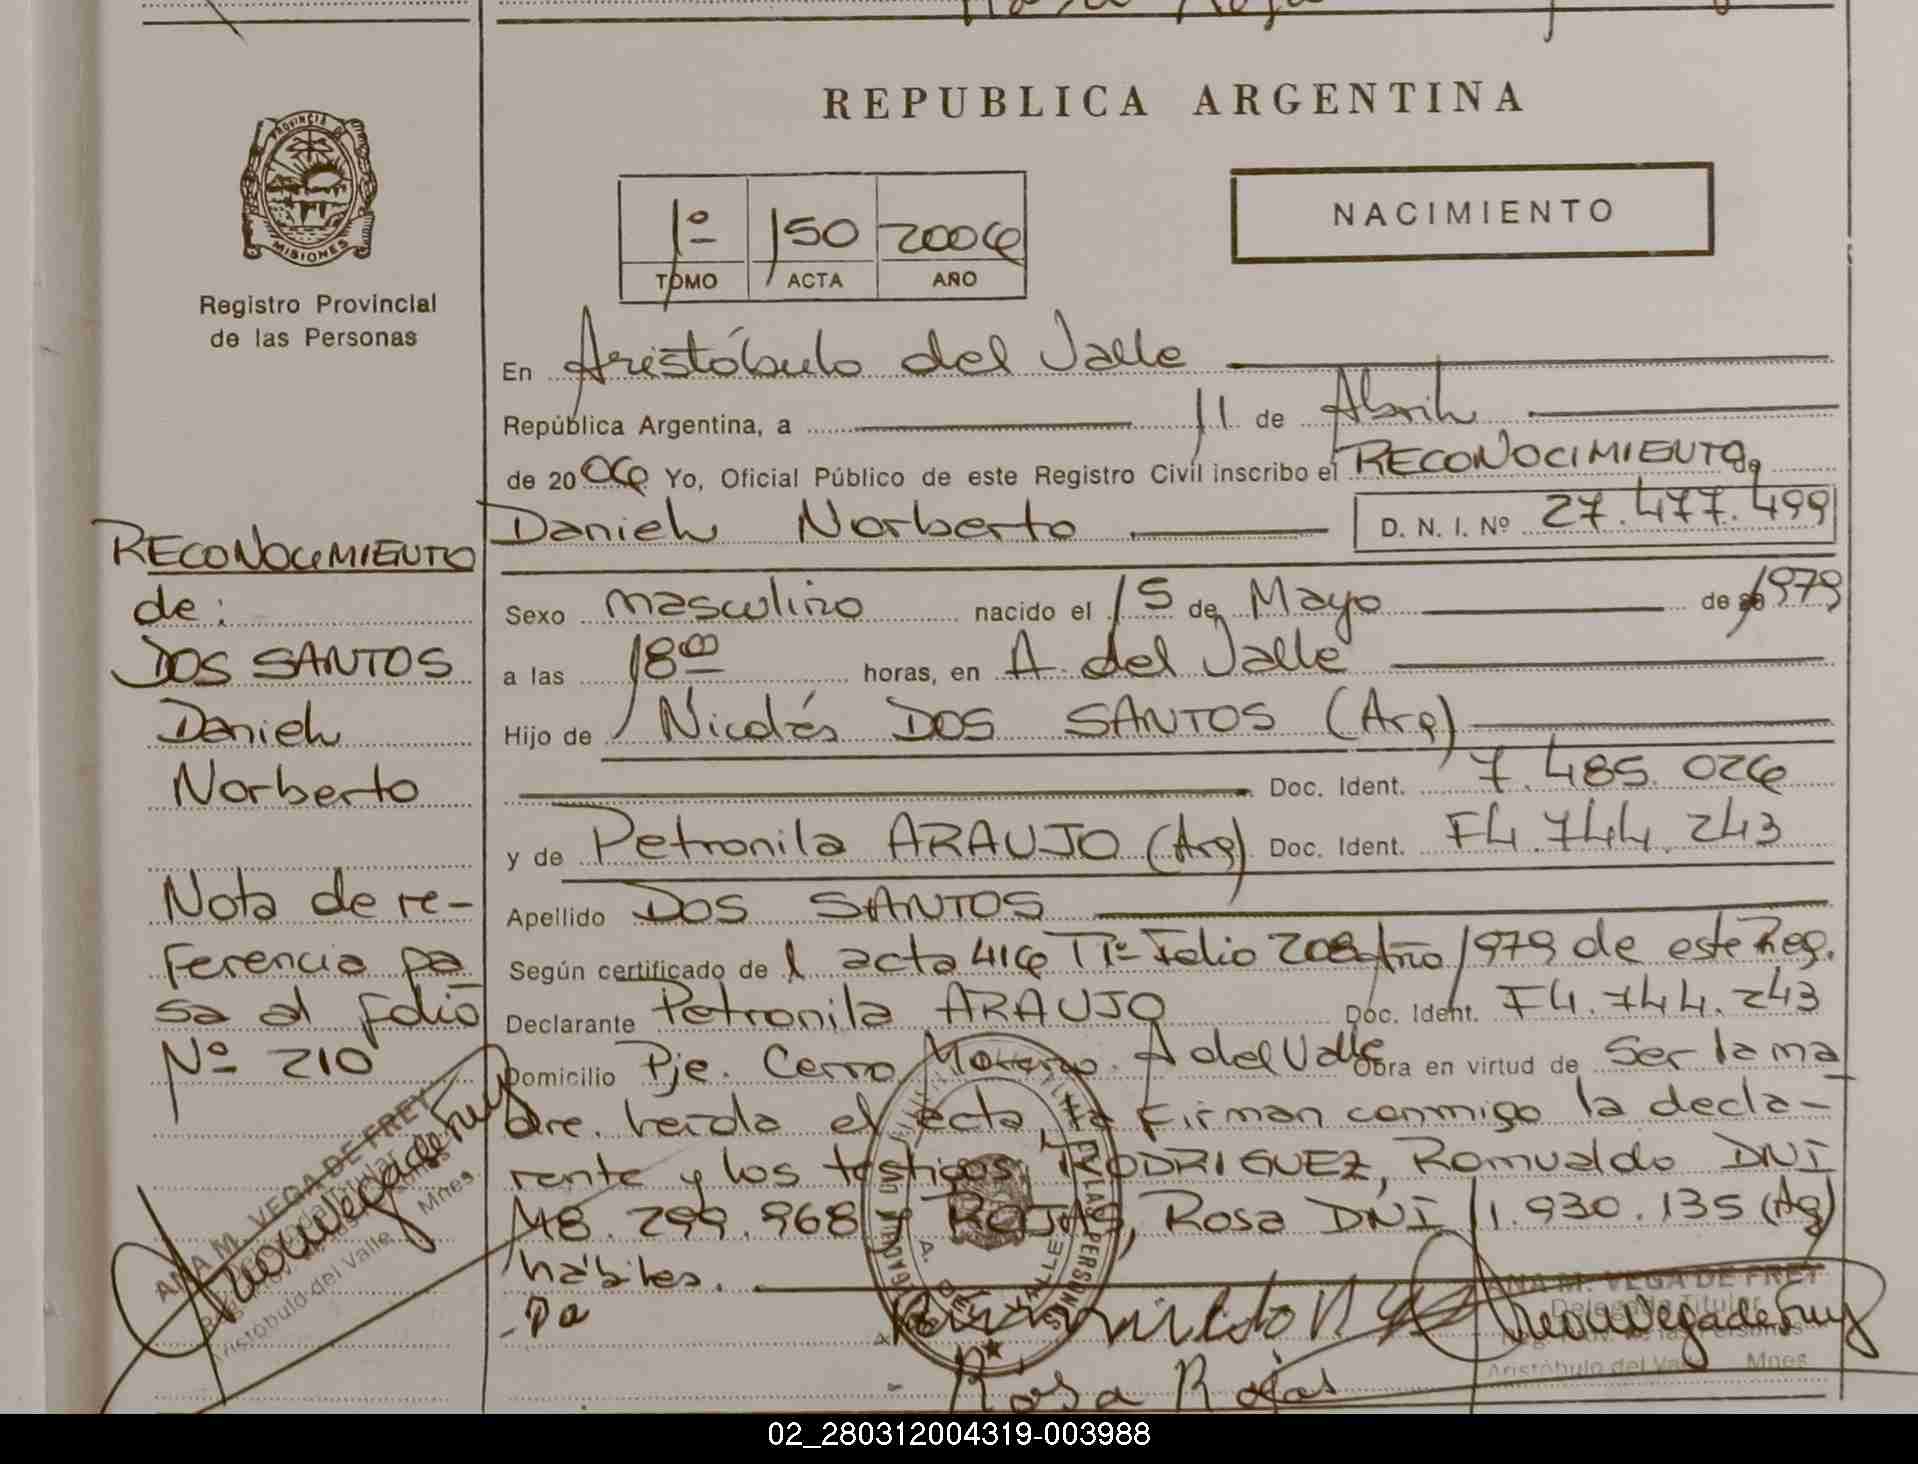 REPUBLICA ARGENTINA
PROVINCIA DE MISIONES
Registro Provincial
de las Personas
1º 150 2006
TOMO ACTA AÑO
NACIMIENTO
En Aristóbulo del Valle
República Argentina, a 11 de Abril
de 2006 Yo, Oficial Público de este Registro Civil inscribo el RECONOCIMIENTO
Daniel Norberto D. N. I. Nº 27.477.499
Sexo masculino nacido el 15 de Mayo de 1979
a las 18 00 horas, en A. del Valle
Hijo de Nicolás DOS SANTOS (Arg)
Doc. Ident. 7.485.026
y de Petronila ARAUJO (Arg) Doc. Ident. F4.744.243
Apellido DOS SANTOS
Según certificado de l acta 416 T1º Folio 208 Año 1979 de este Reg.
Declarante Petronila ARAUJO Doc. Ident. F4.744.243
Domicilio Pje. Cerro Moreno. A del Valle Obra en virtud de Ser la ma
dre. leída el acta, la firman conmigo la decla-
rante y los testigos: RODRIGUEZ, Romualdo DNI
M8.299.968 y ROJAS, Rosa DNI 11.930.135 (Ag)
hábiles.
RECONOCIMIENTO
de:
DOS SANTOS
Daniel
Norberto
Nota de re-
ferencia pa
sa al folio
Nº 210
ANA M. VEGA DE FREY
Delegada Titular
Aristóbulo del Valle Mnes
ANA M. VEGA DE FREY
Delegada Titular
Aristóbulo del Valle Mnes
Rosa Rojas
02_280312004319-003988